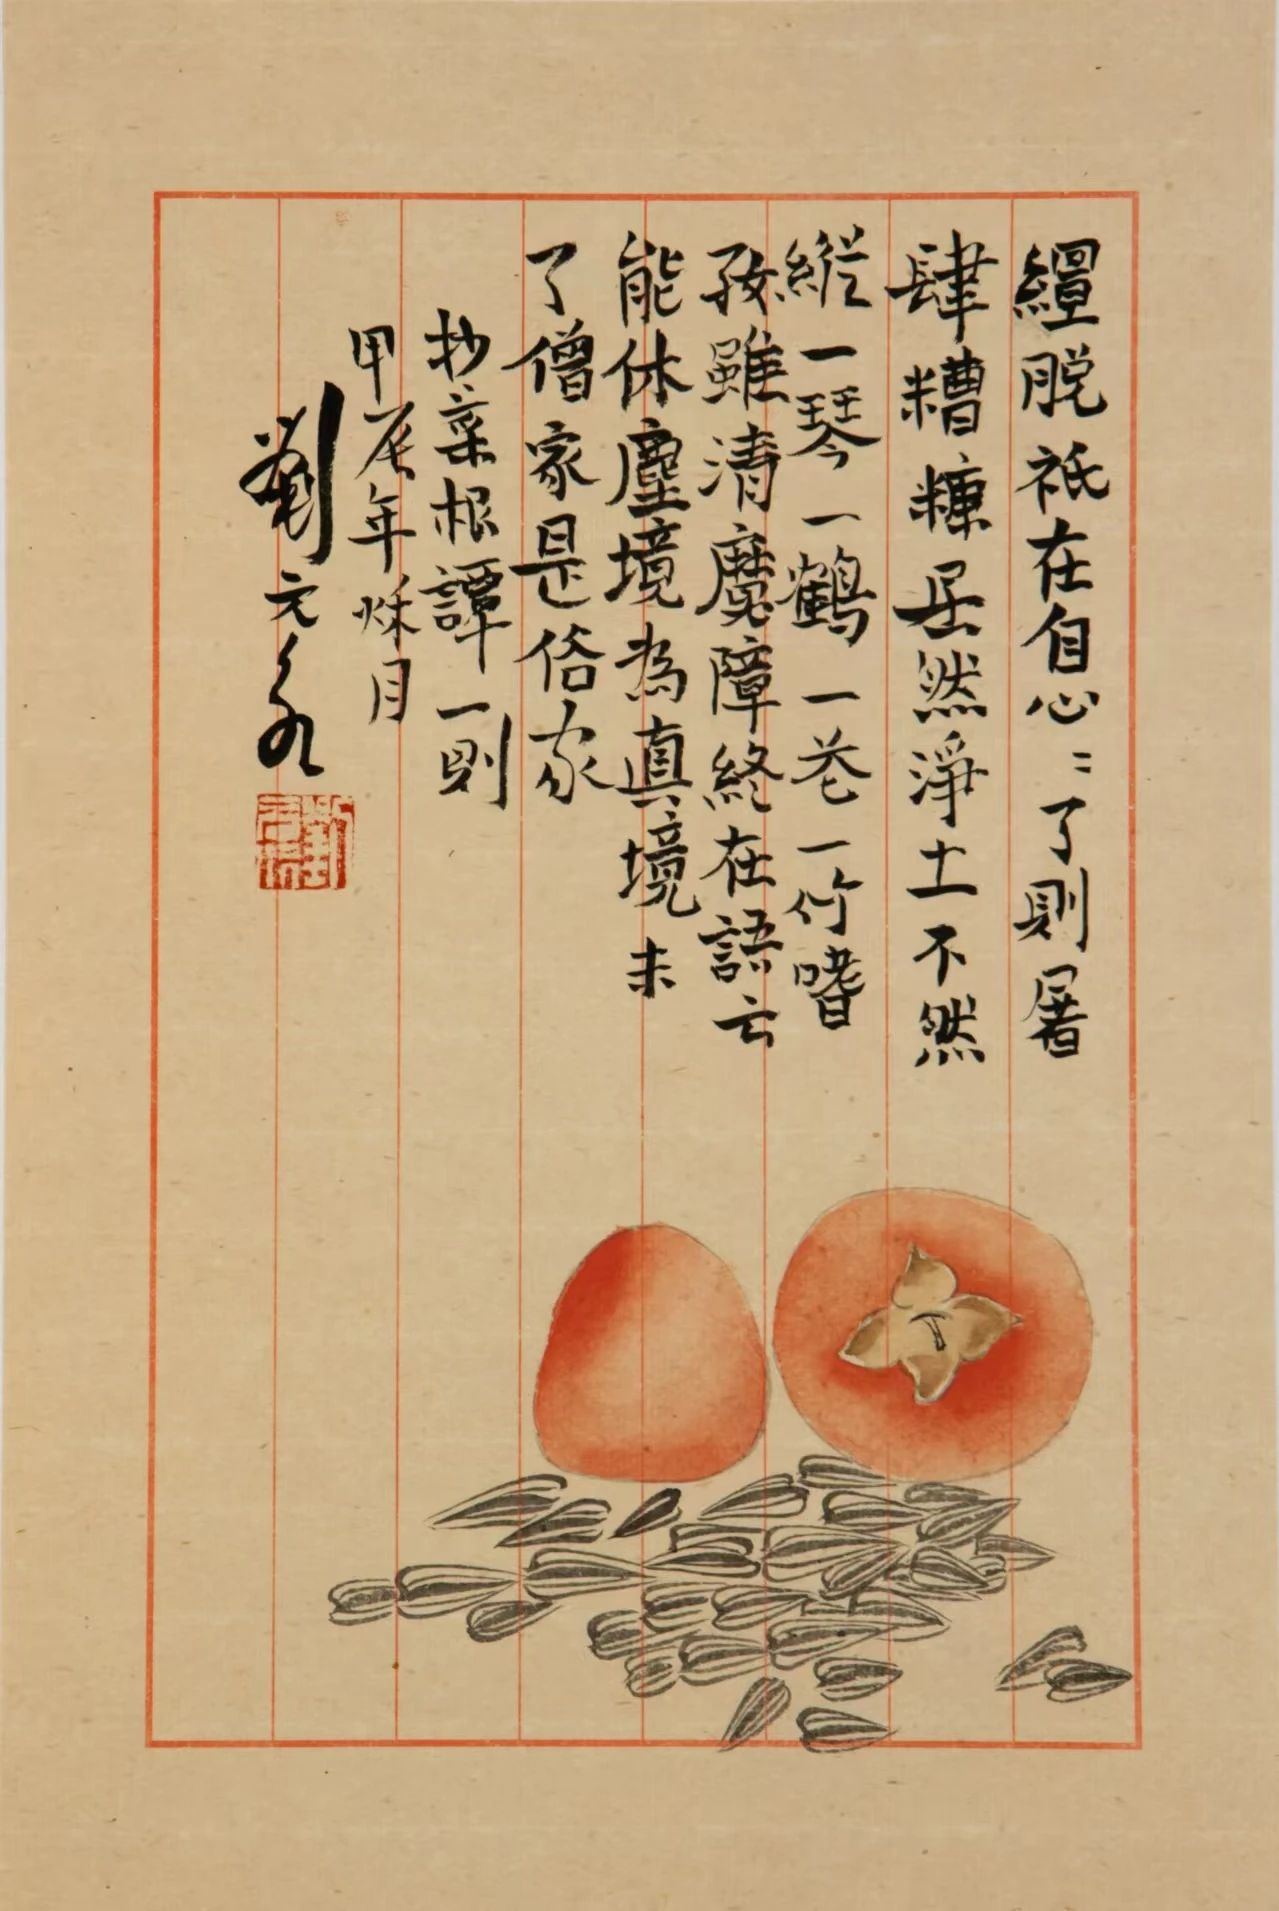 纏脱祇在自心〻了則屠
肆糟糠居然淨土不然
縱一琴一鶴一花一竹嗜
好雖清魔障終在語云
能休塵境為真境未
了僧家是俗家
抄菜根譚一則
甲辰年秌月
劉元